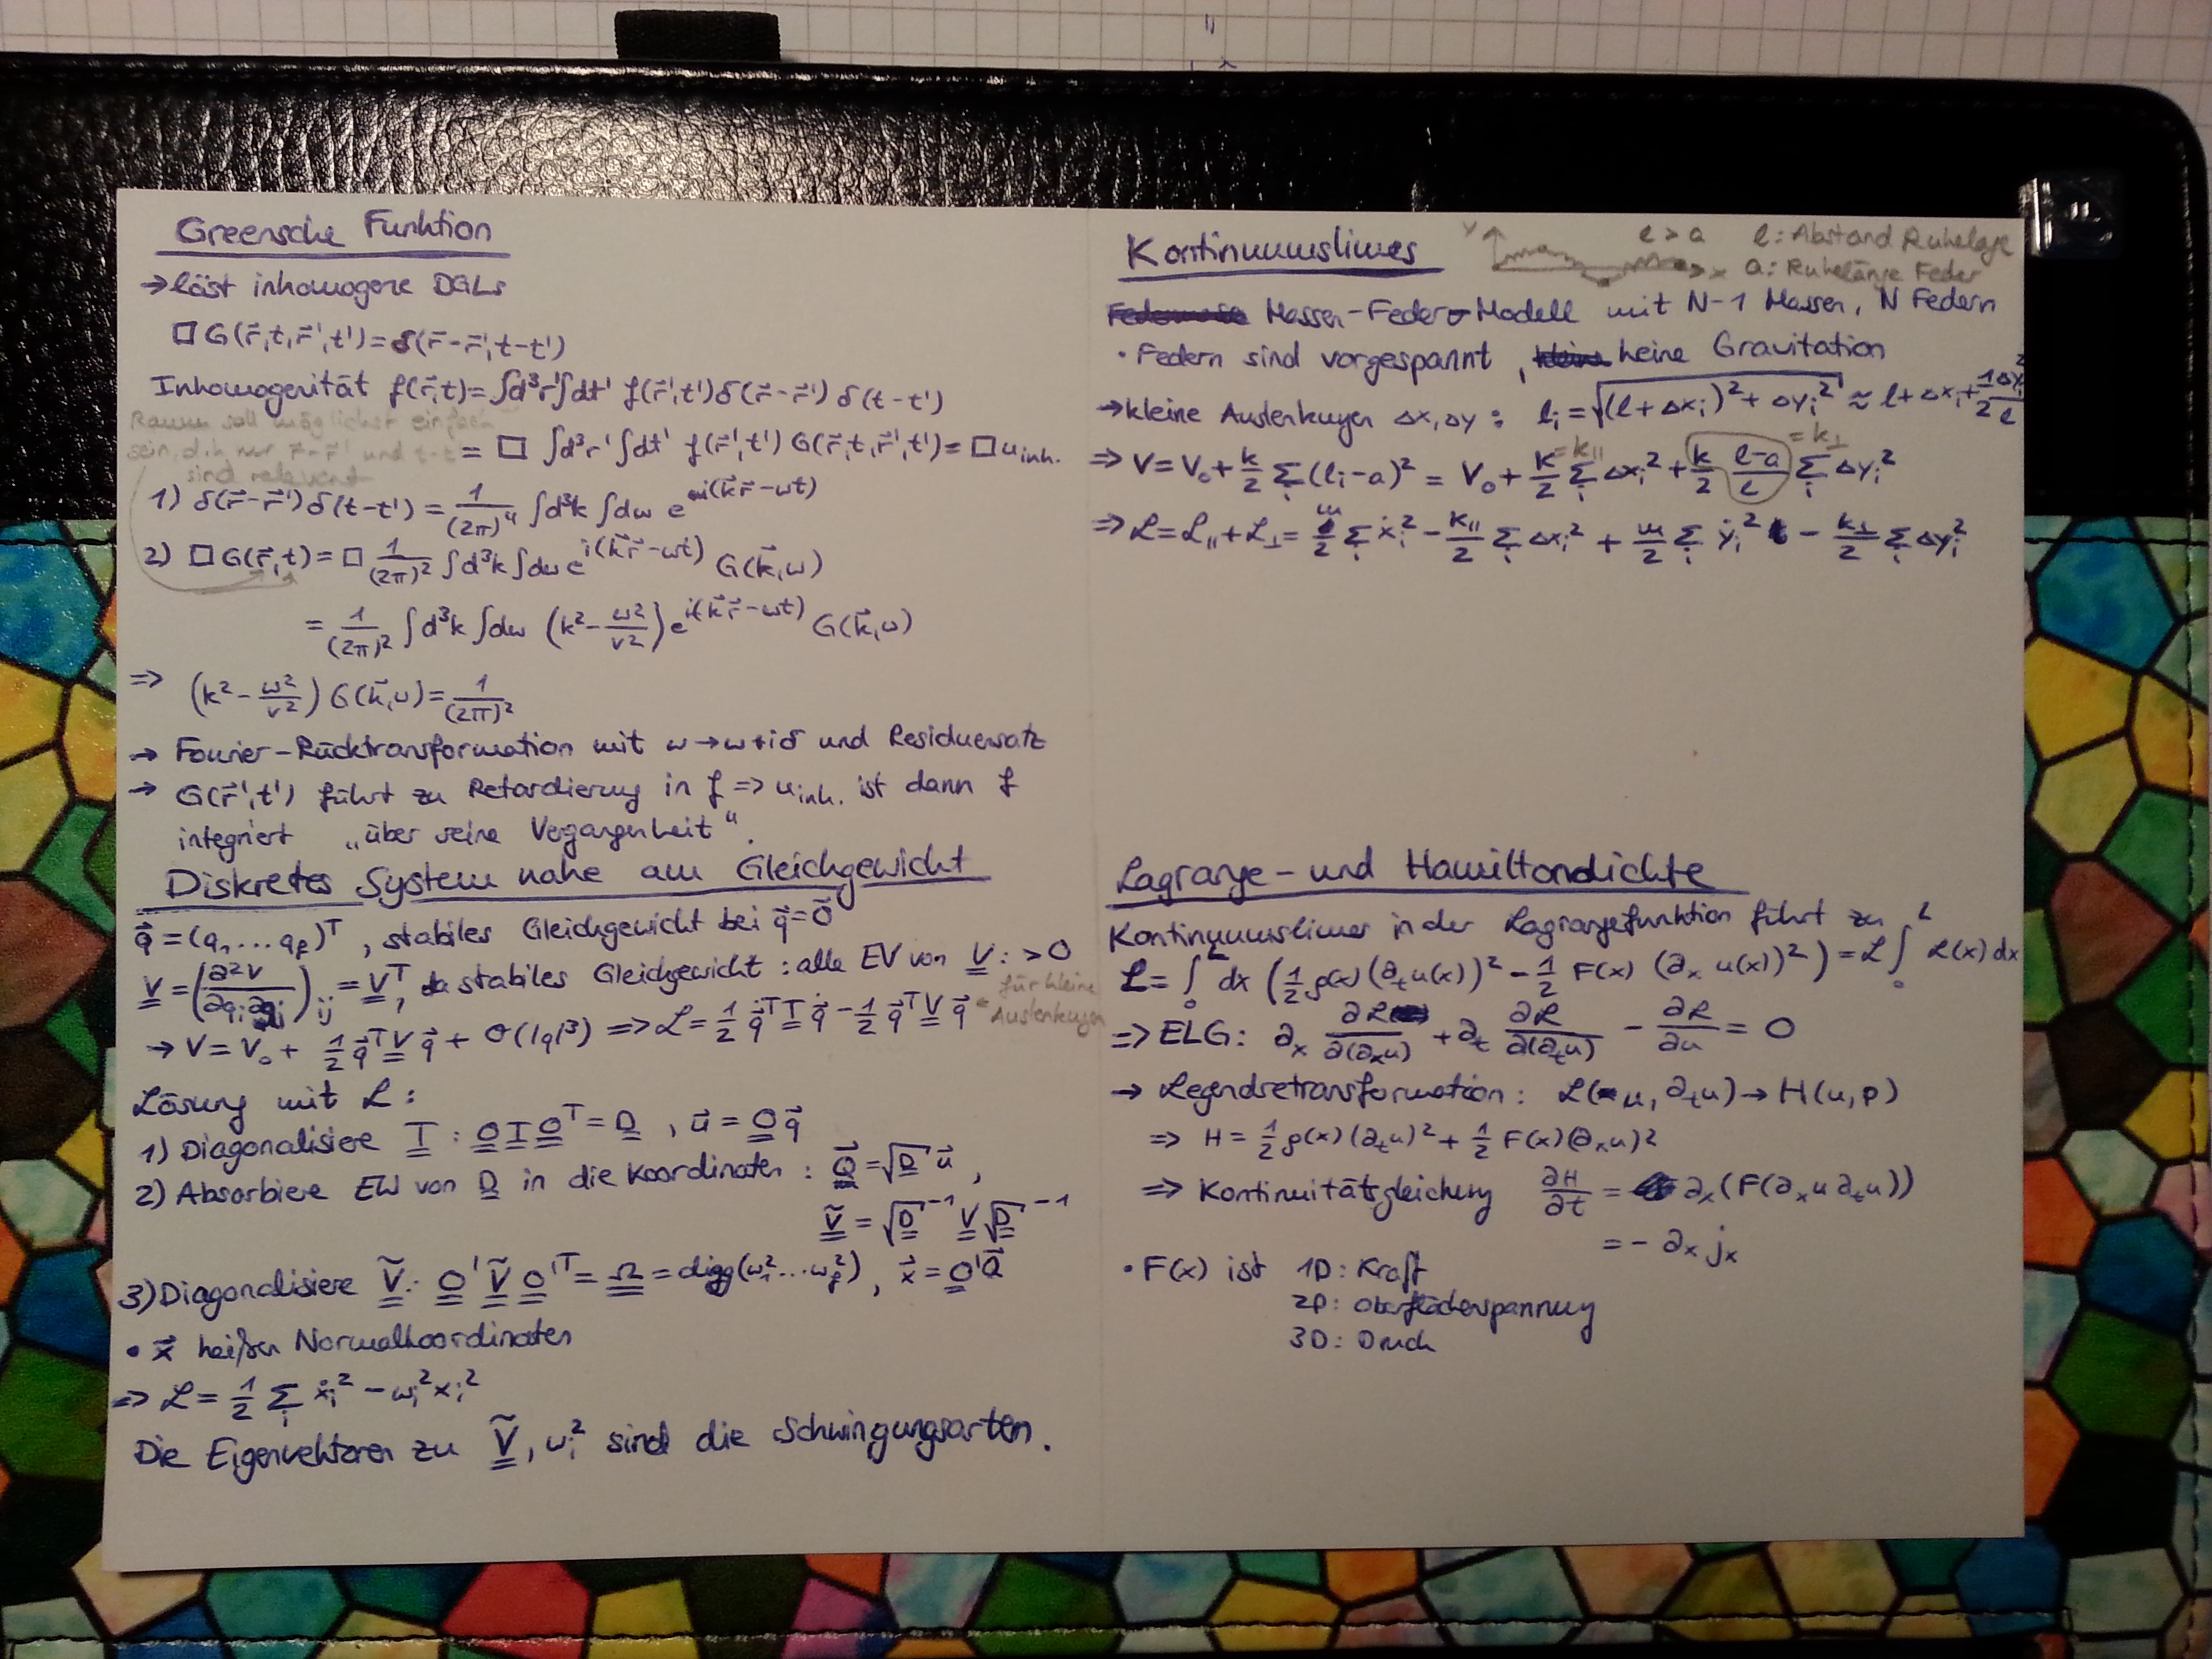 Greensche Funktion
→ löst inhomogene DGLs
□ G(r⃗,t,r⃗',t') = δ(r⃗-r⃗',t-t')
Inhomogenität f(r⃗,t) = ∫d³r'∫dt' f(r⃗',t') δ(r⃗-r⃗') δ(t-t')
Raum soll möglichst einfach
sein, d.h. nur r⃗-r⃗' und t-t'
sind relevant
= □ ∫d³r' ∫dt' f(r⃗',t') G(r⃗,t,r⃗',t') = □ u_inh.
1) δ(r⃗-r⃗') δ(t-t') = 1/(2π)⁴ ∫d³k ∫dω e^{i(k⃗r⃗-ωt)}
2) □ G(r⃗,t) = □ 1/(2π)² ∫d³k ∫dω e^{i(k⃗r⃗-ωt)} G(k⃗,ω)
= 1/(2π)² ∫d³k ∫dω (k² - ω²/v²) e^{i(k⃗r⃗-ωt)} G(k⃗,ω)
=> (k² - ω²/v²) G(k⃗,ω) = 1/(2π)²
→ Fourier-Rücktransformation mit ω→ω+iδ und Residuensatz
→ G(r⃗',t') führt zu Retardierung in f => u_inh. ist dann f
integriert „über seine Vergangenheit“.
Diskretes System nahe am Gleichgewicht
q⃗ = (q₁...q_f)^T, stabiles Gleichgewicht bei q⃗=0⃗
V = (∂²V/∂q_i∂q_j)_ij = V^T, da stabiles Gleichgewicht: alle EV von V: > 0
→ V = V₀ + 1/2 q⃗^T V q⃗ + O(|q|³) => L = 1/2 q⃗̇^T T q⃗̇ - 1/2 q⃗^T V q⃗
für kleine
Auslenkungen
Lösung mit L:
1) Diagonalisiere T: O T O^T = D, u⃗ = O q⃗
2) Absorbiere EW von D in die Koordinaten: Q⃗ = √D u⃗,
Ṽ = √D⁻¹ V √D⁻¹
3) Diagonalisiere Ṽ: O' Ṽ O'^T = Ω = diag(ω₁²...ω_f²), x⃗ = O'Q⃗
• x⃗ heißen Normalkoordinaten
=> L = 1/2 Σ_i ẋ_i² - ω_i² x_i²
Die Eigenvektoren zu Ṽ, ω_i² sind die Schwingungsarten.
Kontinuumslimes
y x
l > a l: Abstand Ruhelage
a: Ruhelänge Feder
Massen-Feder-Modell mit N-1 Massen, N Federn
• Federn sind vorgespannt, keine Gravitation
→ kleine Auslenkungen Δx, Δy: l_i = √((l+Δx_i)² + Δy_i²) ≈ l + Δx_i + 1/2 Δy_i²/l
=> V = V₀ + k/2 Σ_i (l_i-a)² = V₀ + k/2 Σ_i Δx_i² + k/2 (l-a)/l Σ_i Δy_i²
= k_∥ = k_⊥
=> L = L_∥ + L_⊥ = m/2 Σ_i ẋ_i² - k_∥/2 Σ_i Δx_i² + m/2 Σ_i ẏ_i² - k_⊥/2 Σ_i Δy_i²
Lagrange- und Hamiltondichte
Kontinuumslimes in der Lagrangefunktion führt zu
L = ∫₀^L dx (1/2 ρ(x) (∂_t u(x))² - 1/2 F(x) (∂_x u(x))²) = L ∫₀^L L(x) dx
=> ELG: ∂_x ∂L/∂(∂_x u) + ∂_t ∂L/∂(∂_t u) - ∂L/∂u = 0
→ Legendretransformation: L(u, ∂_t u) → H(u,p)
=> H = 1/2 ρ(x) (∂_t u)² + 1/2 F(x) (∂_x u)²
=> Kontinuitätsgleichung ∂H/∂t = ∂_x (F(∂_x u ∂_t u))
= - ∂_x j_x
• F(x) ist 1D: Kraft
2D: Oberflächenspannung
3D: Druck